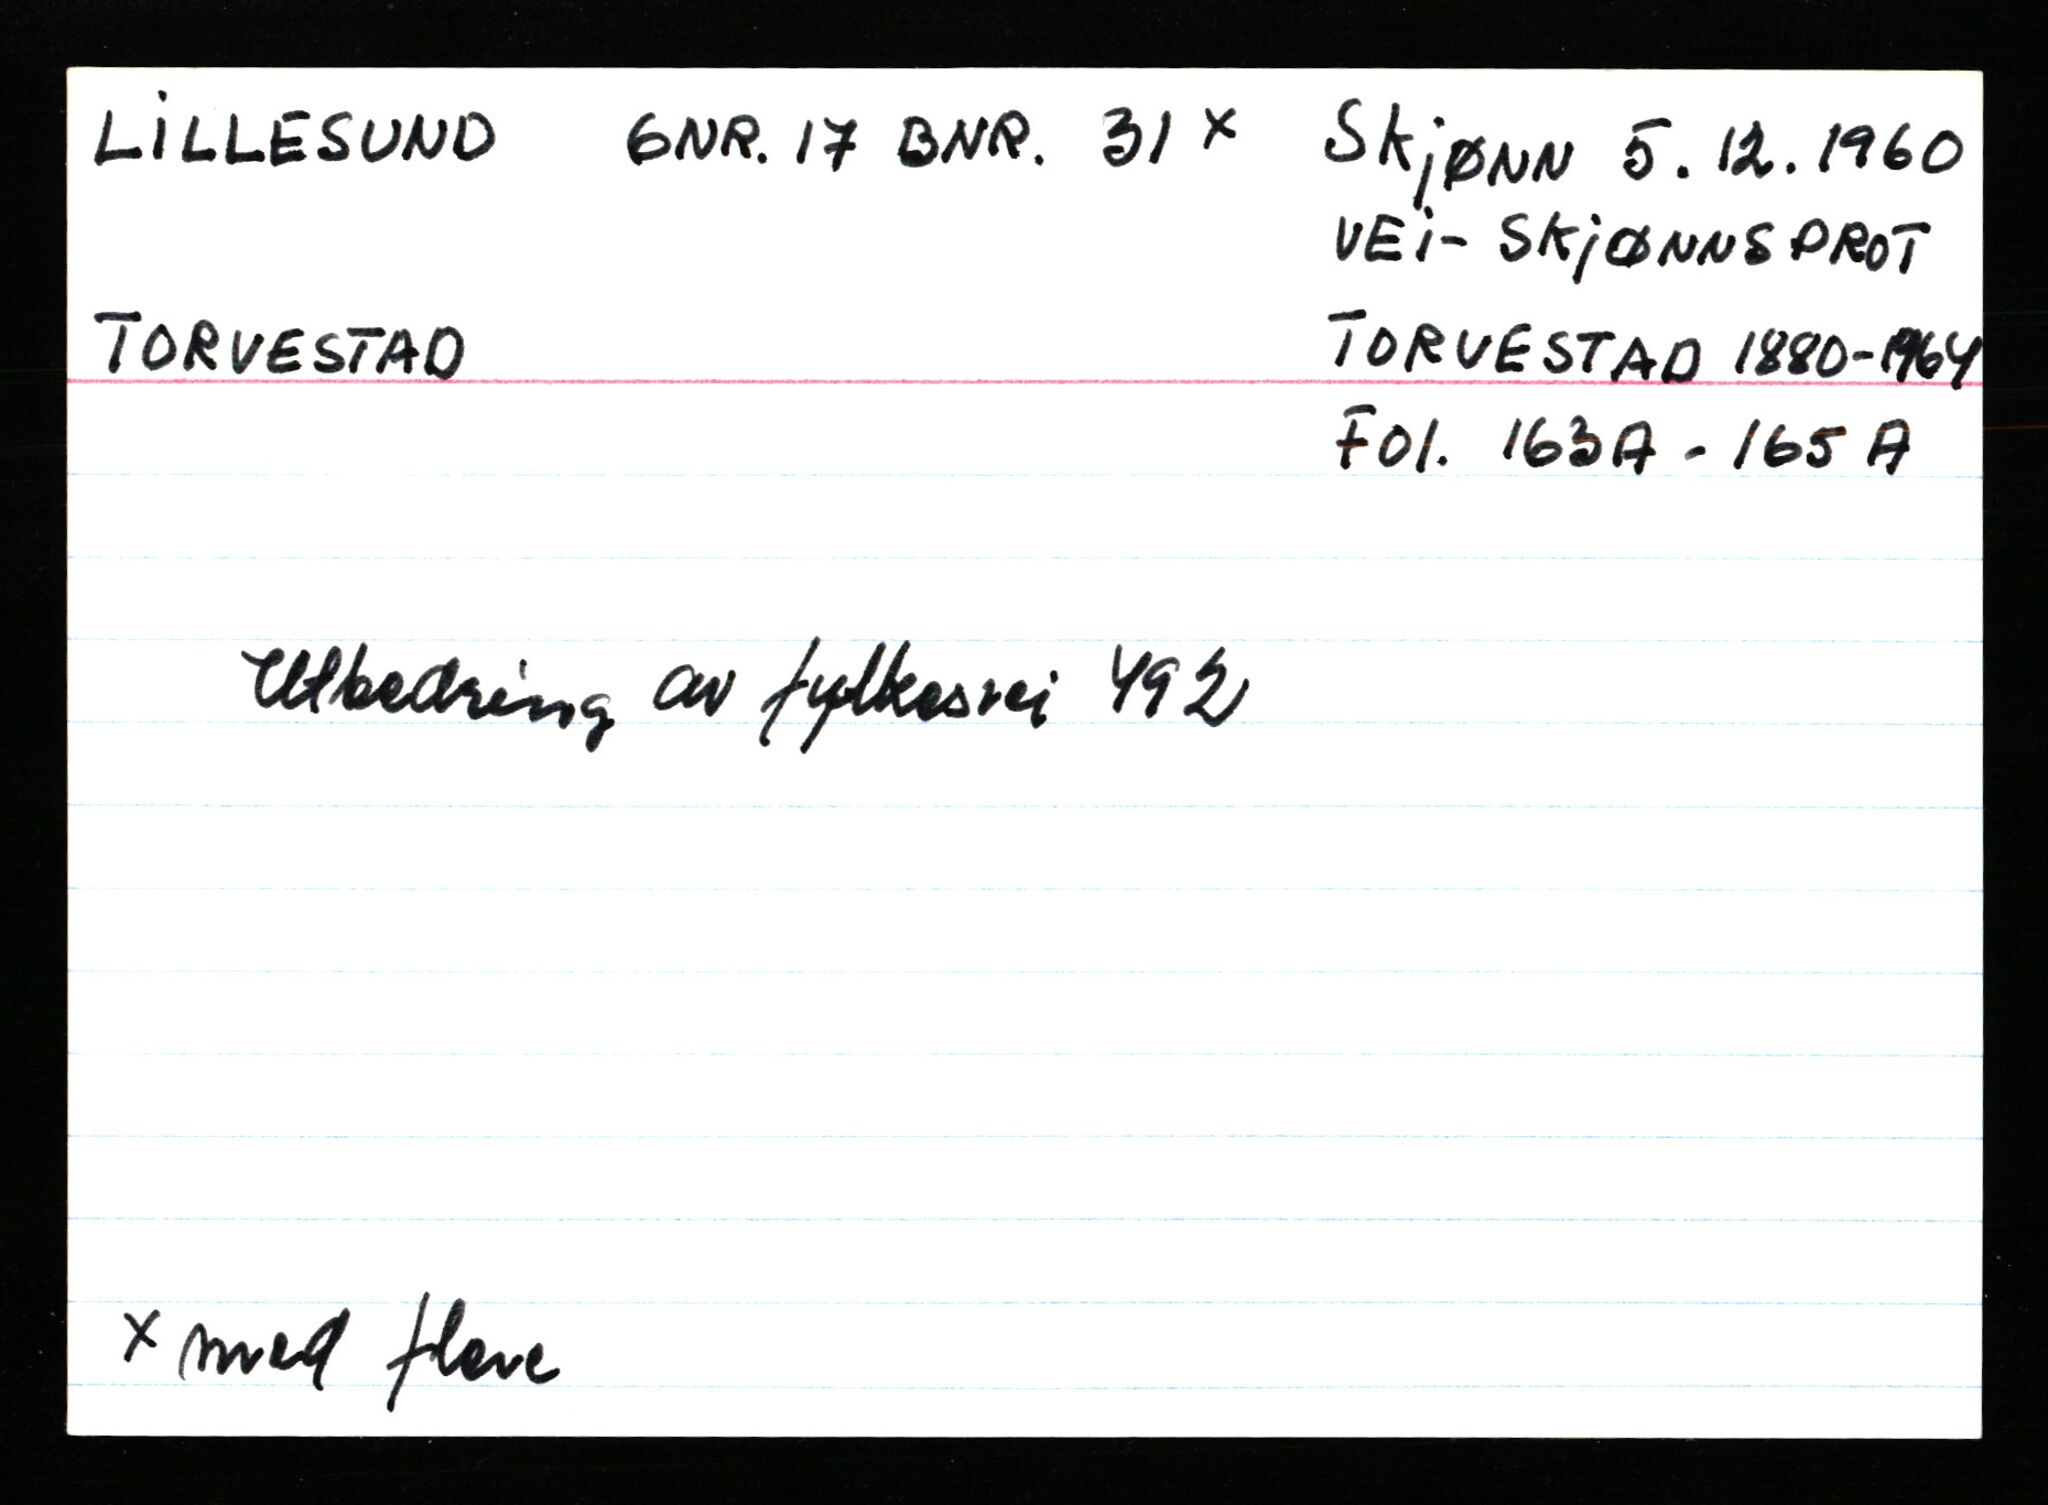 LILLESUND GNR. 17 BNR. 31 x Skjønn 5.12.1960
VEI- SKJØNNSPROT
TORVESTAD TORVESTAD 1880-1964
Fol. 163A - 165A
Utbedring av fylkesvei 492
x med flere